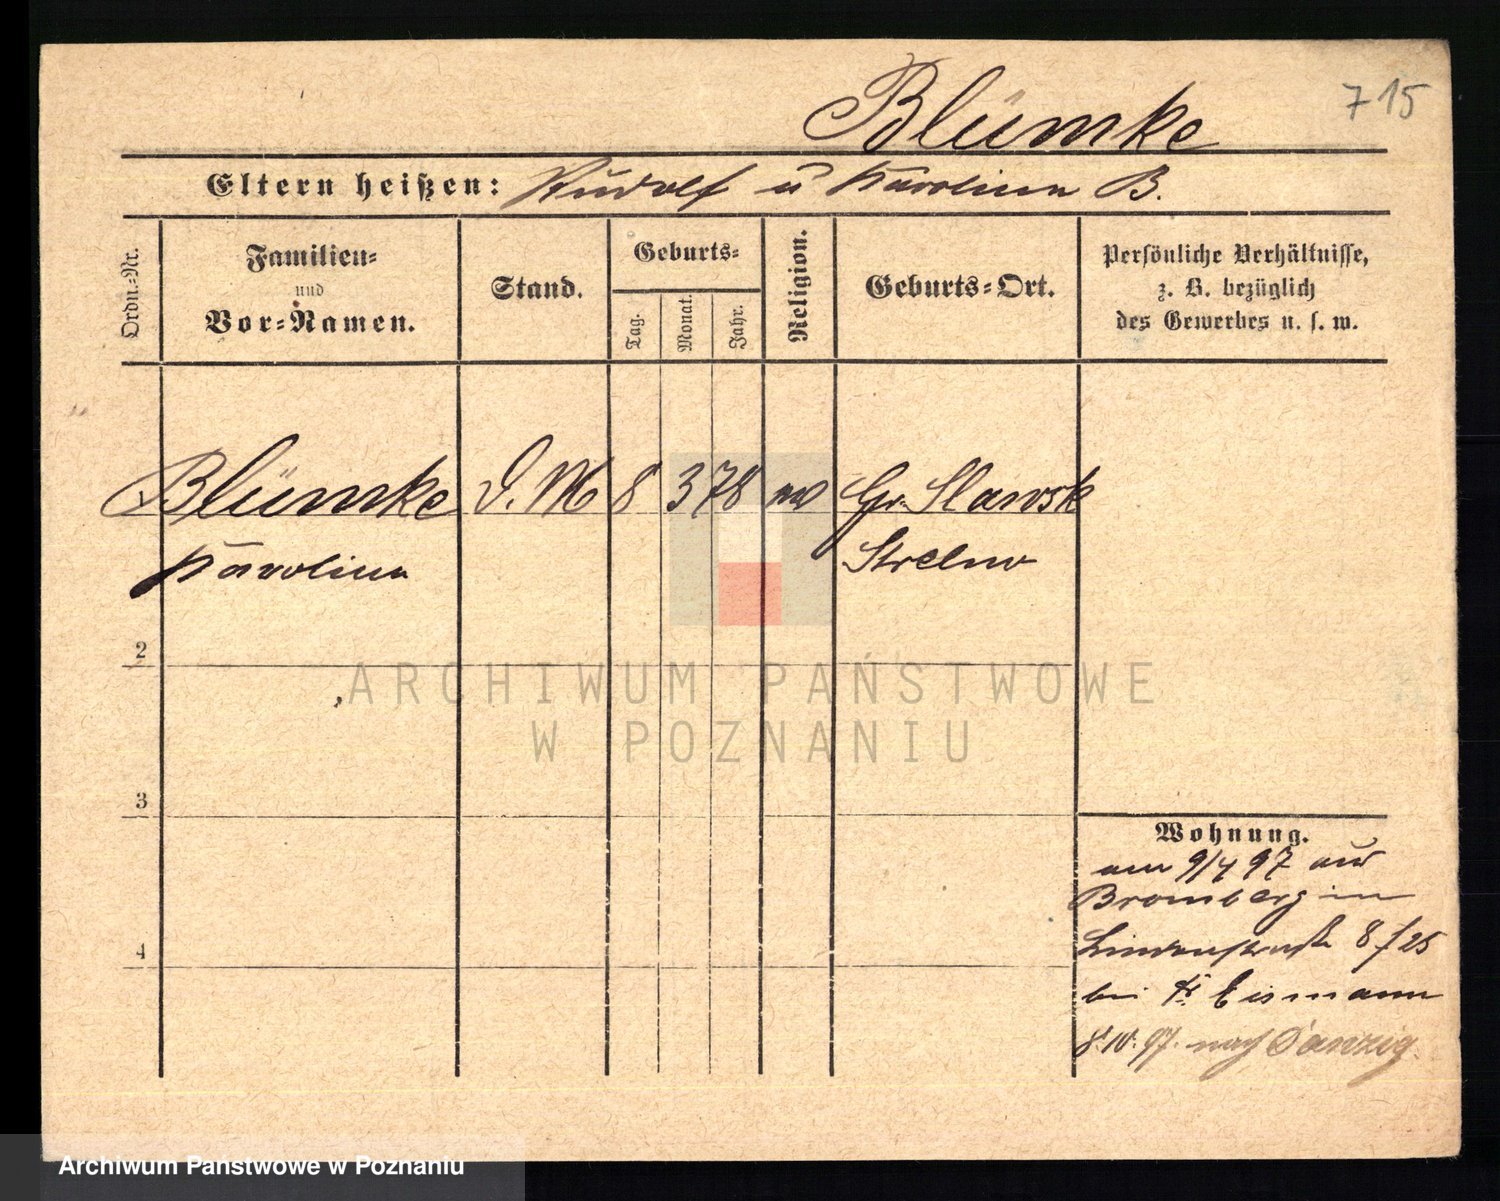 715
Blümke
Eltern heißen: Rudolf u Karolina B.
Ordn.-Nr.
Familien-
und
Vor-Namen.
Stand.
Geburts-
Tag.
Monat.
Jahr.
Religion.
Geburts-Ort.
Persönliche Verhältnisse,
z. B. bezüglich
des Gewerbes u. s. w.
Blümke D. M 8 3 78 Gr. Slawsk
Karolina Strelno
2
3
4
Wohnung.
am 9/4 97 aus
Bromberg in
Lindenstraße 8/25
bei Fr. Eismann
8.10.97. nach Danzig.
ARCHIWUM PAŃSTWOWE
W POZNANIU
Archiwum Państwowe w Poznaniu